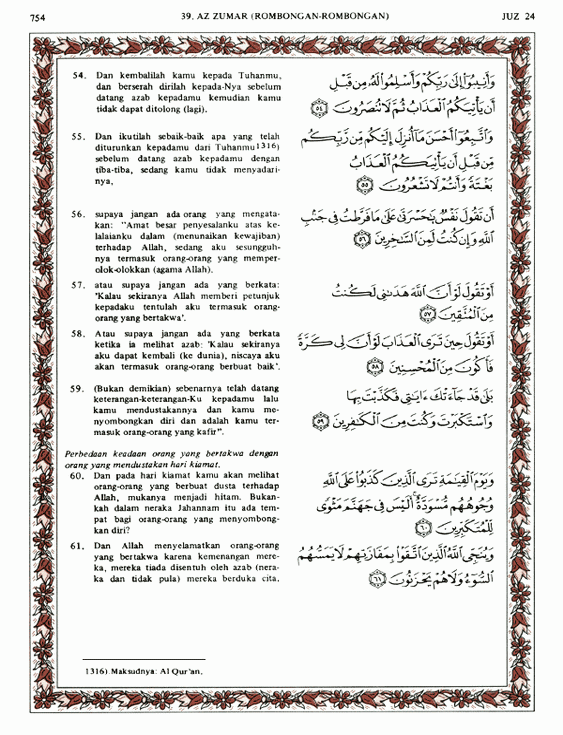 754
39. AZ ZUMAR (ROMBONGAN-ROMBONGAN)
JUZ 24
54. Dan kembalilah kamu kepada Tuhanmu,
dan berserah dirilah kepada-Nya sebelum
datang azab kepadamu kemudian kamu
tidak dapat ditolong (lagi).
وَأَنِيبُوٓا۟ إِلَىٰ رَبِّكُمْ وَأَسْلِمُوا۟ لَهُۥ مِن قَبْلِ
أَن يَأْتِيَكُمُ ٱلْعَذَابُ ثُمَّ لَا تُنصَرُونَ ٥٤
55. Dan ikutilah sebaik-baik apa yang telah
diturunkan kepadamu dari Tuhanmu1316)
sebelum datang azab kepadamu dengan
tiba-tiba, sedang kamu tidak menyadari-
nya,
وَٱتَّبِعُوٓا۟ أَحْسَنَ مَآ أُنزِلَ إِلَيْكُم مِّن رَّبِّكُم
مِّن قَبْلِ أَن يَأْتِيَكُمُ ٱلْعَذَابُ
بَغْتَةً وَأَنتُمْ لَا تَشْعُرُونَ ٥٥
56. supaya jangan ada orang yang mengata-
kan: "Amat besar penyesalanku atas ke-
lalaianku dalam (menunaikan kewajiban)
terhadap Allah, sedang aku sesungguh-
nya termasuk orang-orang yang memper-
olok-olokkan (agama Allah).
أَن تَقُولَ نَفْسٌ يَٰحَسْرَتَىٰ عَلَىٰ مَا فَرَّطتُ فِى جَنۢبِ
ٱللَّهِ وَإِن كُنتُ لَمِنَ ٱلسَّٰخِرِينَ ٥٦
57. atau supaya jangan ada yang berkata:
'Kalau sekiranya Allah memberi petunjuk
kepadaku tentulah aku termasuk orang-
orang yang bertakwa'.
أَوْ تَقُولَ لَوْ أَنَّ ٱللَّهَ هَدَىٰنِى لَكُنتُ
مِنَ ٱلْمُتَّقِينَ ٥٧
58. Atau supaya jangan ada yang berkata
ketika ia melihat azab: 'Kalau sekiranya
aku dapat kembali (ke dunia), niscaya aku
akan termasuk orang-orang berbuat baik'.
أَوْ تَقُولَ حِينَ تَرَى ٱلْعَذَابَ لَوْ أَنَّ لِى كَرَّةً
فَأَكُونَ مِنَ ٱلْمُحْسِنِينَ ٥٨
59. (Bukan demikian) sebenarnya telah datang
keterangan-keterangan-Ku kepadamu lalu
kamu mendustakannya dan kamu me-
nyombongkan diri dan adalah kamu ter-
masuk orang-orang yang kafir".
بَلَىٰ قَدْ جَآءَتْكَ ءَايَٰتِى فَكَذَّبْتَ بِهَا
وَٱسْتَكْبَرْتَ وَكُنتَ مِنَ ٱلْكَٰفِرِينَ ٥٩
Perbedaan keadaan orang yang bertakwa dengan
orang yang mendustakan hari kiamat.
60. Dan pada hari kiamat kamu akan melihat
orang-orang yang berbuat dusta terhadap
Allah, mukanya menjadi hitam. Bukan-
kah dalam neraka Jahannam itu ada tem-
pat bagi orang-orang yang menyombong-
kan diri?
وَيَوْمَ ٱلْقِيَٰمَةِ تَرَى ٱلَّذِينَ كَذَبُوا۟ عَلَى ٱللَّهِ
وُجُوهُهُم مُّسْوَدَّةٌ أَلَيْسَ فِى جَهَنَّمَ مَثْوًى
لِّلْمُتَكَبِّرِينَ ٦٠
61. Dan Allah menyelamatkan orang-orang
yang bertakwa karena kemenangan mere-
ka, mereka tiada disentuh oleh azab (nera-
ka dan tidak pula) mereka berduka cita.
وَيُنَجِّى ٱللَّهُ ٱلَّذِينَ ٱتَّقَوْا۟ بِمَفَازَتِهِمْ لَا يَمَسُّهُمُ
ٱلسُّوٓءُ وَلَا هُمْ يَحْزَنُونَ ٦١
1316) Maksudnya: Al Qur'an.